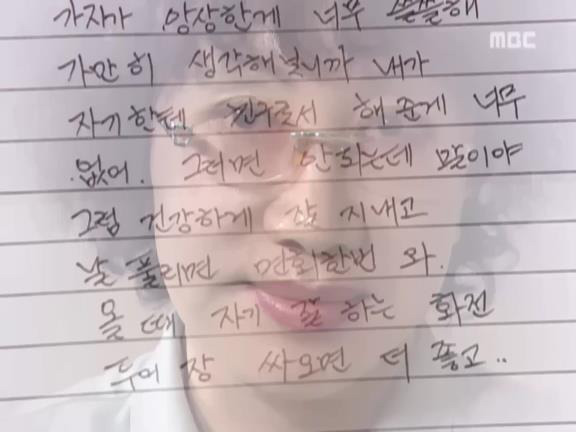 가지가 앙상한게 너무 쓸쓸해
MBC
가만히 생각해보니까 내가
자기한테 친구로서 해 준게 너무
없어. 그러면 안되는데 말이야
그럼 건강하게 잘 지내고
날 풀리면 면회한번 와.
올 때 자기 잘 하는 화전
두어 장 싸오면 더 좋고..